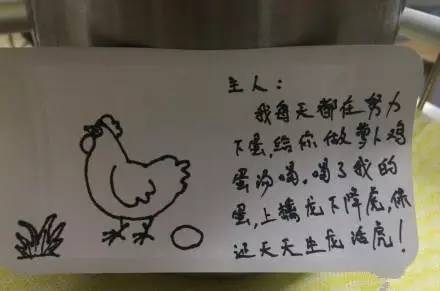 主人：
我每天都在努力
下蛋，给你做萝卜鸡
蛋汤喝，喝了我的
蛋，上擒龙下降虎，保
还天天生龙活虎！